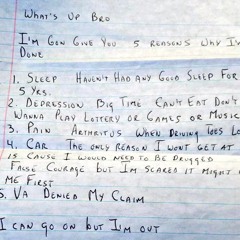 What's Up Bro
I'm Gon Give You 5 reasons Why I'm
Done
1. Sleep Haven't Had Any Good Sleep For
5 yrs.
2. Depression Big Time Can't Eat Don't
Wanna Play Lottery or Games or Music
3. Pain Arthritus When Driving Toes Lo
4. Car The only Reason I wont get at
is Cause I would need to be Drugged
False Courage but I'm Scared it might
me First
5. VA Denied My Claim
I can go on but I'm out